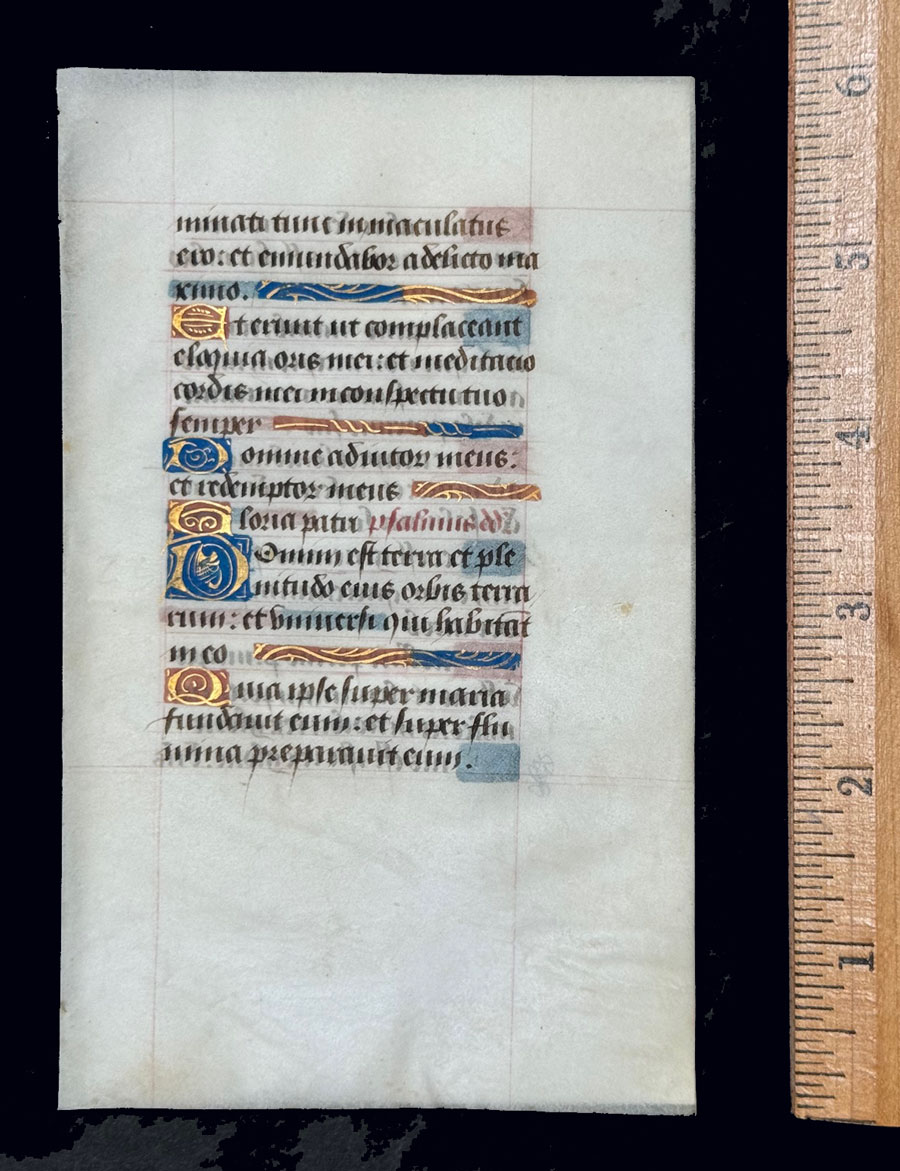 minati tunc inmaculatus
ero: et emundabor a delicto ma
ximo.
Et erunt ut complaceant
eloquia oris mei: et meditacio
cordis mei in conspectu tuo
semper
Domine adiutor meus:
et redemptor meus
Gloria patri psalmus dd
Domini est terra et ple
nitudo eius orbis terra
rum: et universi qui habitat
in eo
Quia ipse super maria
fundavit eum: et super flu
mina preparavit eum.
6
5
4
3
2
1